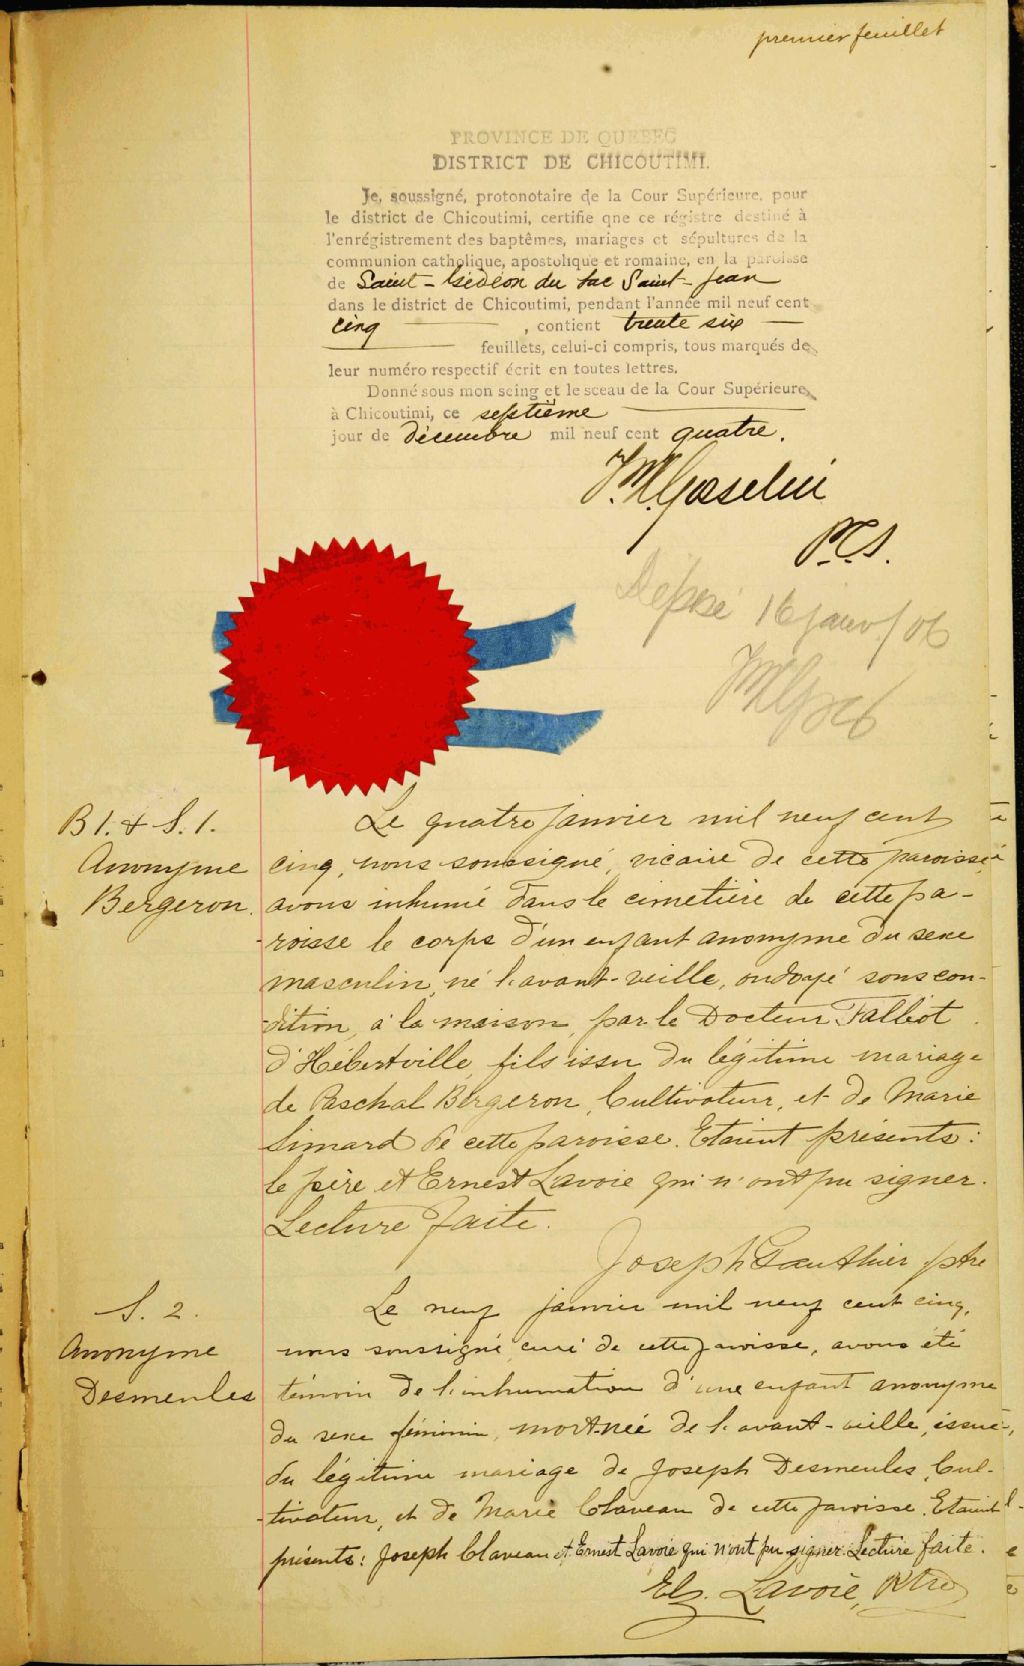 premier feuillet
PROVINCE DE QUEBEC
DISTRICT DE CHICOUTIMI.
Je, soussigné, protonotaire de la Cour Supérieure, pour
le district de Chicoutimi, certifie qne ce régistre destiné à
l'enrégistrement des baptêmes, mariages et sépultures de la
communion catholique, apostolique et romaine, en la paroisse
de Saint-Gédéon du Lac Saint-Jean
dans le district de Chicoutimi, pendant l'année mil neuf cent
cinq , contient trente six
feuillets, celui-ci compris, tous marqués de
leur numéro respectif écrit en toutes lettres.
Donné sous mon seing et le sceau de la Cour Supérieure,
à Chicoutimi, ce septième
jour de décembre mil neuf cent quatre.
Gosselin
P.C.S.
Déposé 16 janv/06
B 1. & S. 1.
Anonyme
Bergeron.
Le quatre janvier mil neuf cent
cinq, nous soussigné, vicaire de cette paroisse,
avons inhumé dans le cimetière de cette pa-
-roisse le corps d'un enfant anonyme du sexe
masculin, né l'avant-veille, ondoyé sous con-
-dition, à la maison, par le Docteur Talbot
d'Hébertville, fils issu du légitime mariage
de Paschal Bergeron, Cultivateur, et de Marie
Simard de cette paroisse. Etaient présents:
le père et Ernest Lavoie qui n'ont pu signer.
Lecture faite.
Joseph Gauthier ptre
S. 2.
Anonyme
Desmeules
Le neuf janvier mil neuf cent cinq,
nous soussigné curé de cette paroisse, avons été
témoin de l'inhumation d'une enfant anonyme
du sexe féminin, mort-née de l'avant-veille, issue,
du légitime mariage de Joseph Desmeules, Cul-
-tivateur, et de Marie Claveau de cette paroisse. Etaient
présents: Joseph Claveau et Ernest Lavoie qui n'ont pu signer. Lecture faite.
Elz. Lavoie, Ptre